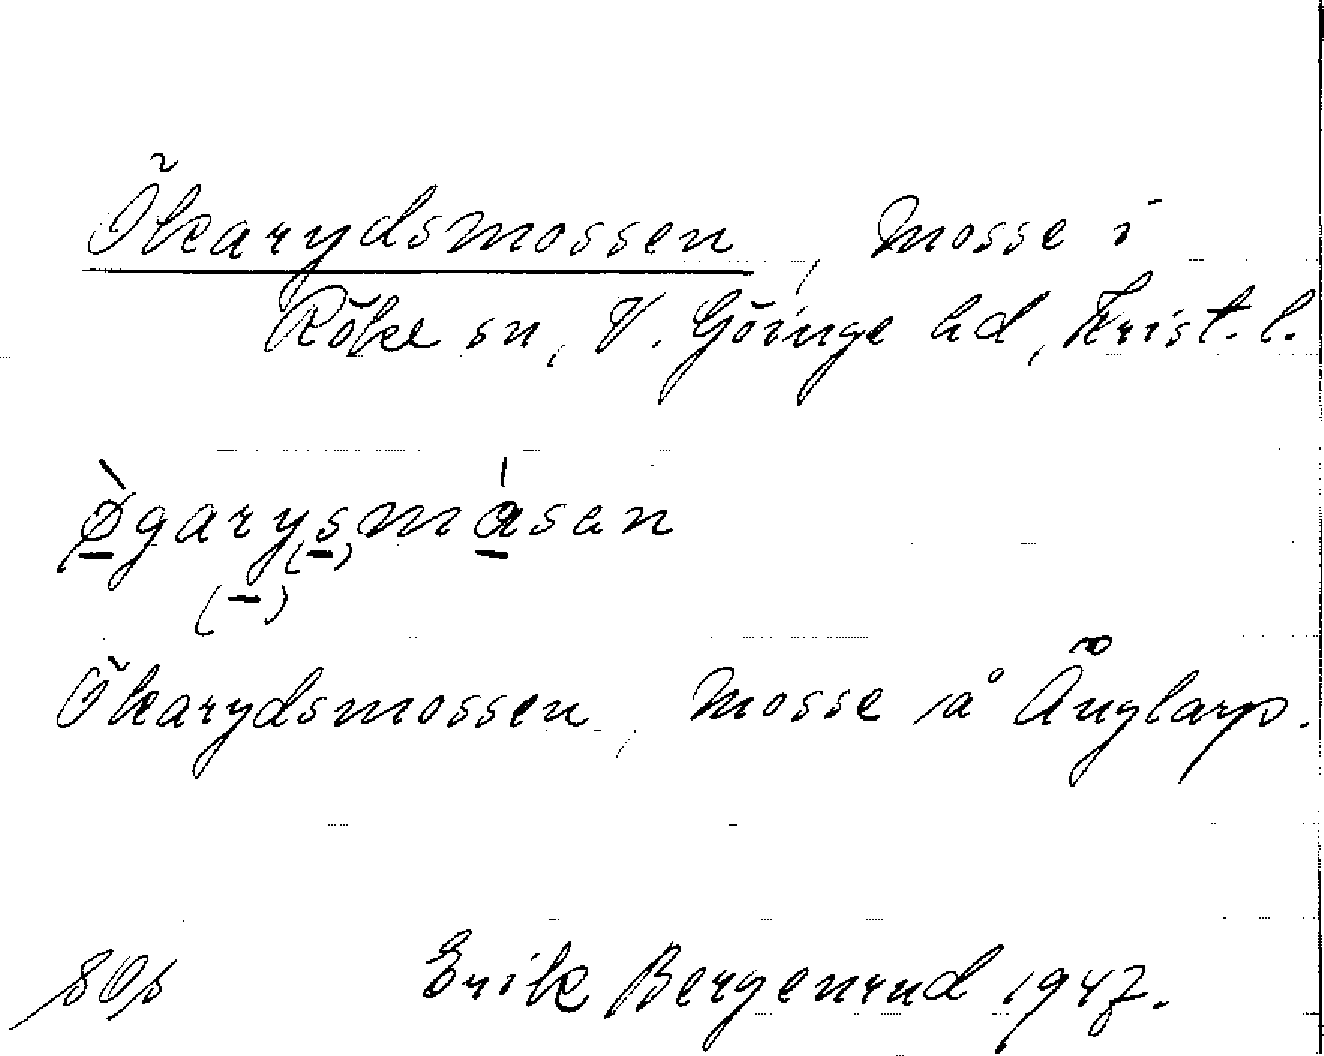 Ökarydsmossen, Mosse i
Röke sn, V. Göinge hd, Krist. l.
ø̀garysmåsan
Ökarydsmossen, Mosse å Änglarp.
Erik Bergenrud 1947.